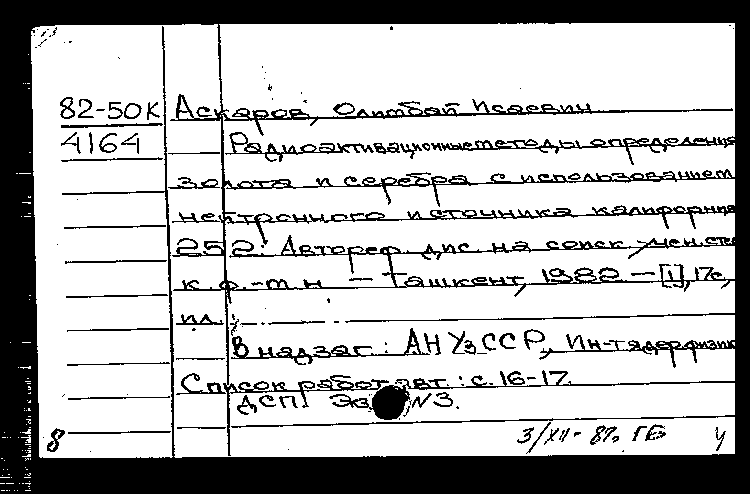 82-50К Аскаров, Олимбай Исаевич
4164 Радиоактивационные методы определения
золота и серебра с использованием
нейтронного источника калифорния
252: Автореф. дис. на соиск. учен. сте
к. ф.-м. н. — Ташкент, 1980. — [1], 17с.,
ил.
В надзаг.: АН УзССР, Ин-т ядер. физик
Список работ авт.: с. 16-17.
ДСП. Экз №3.
8 3/XII-87. ГБ